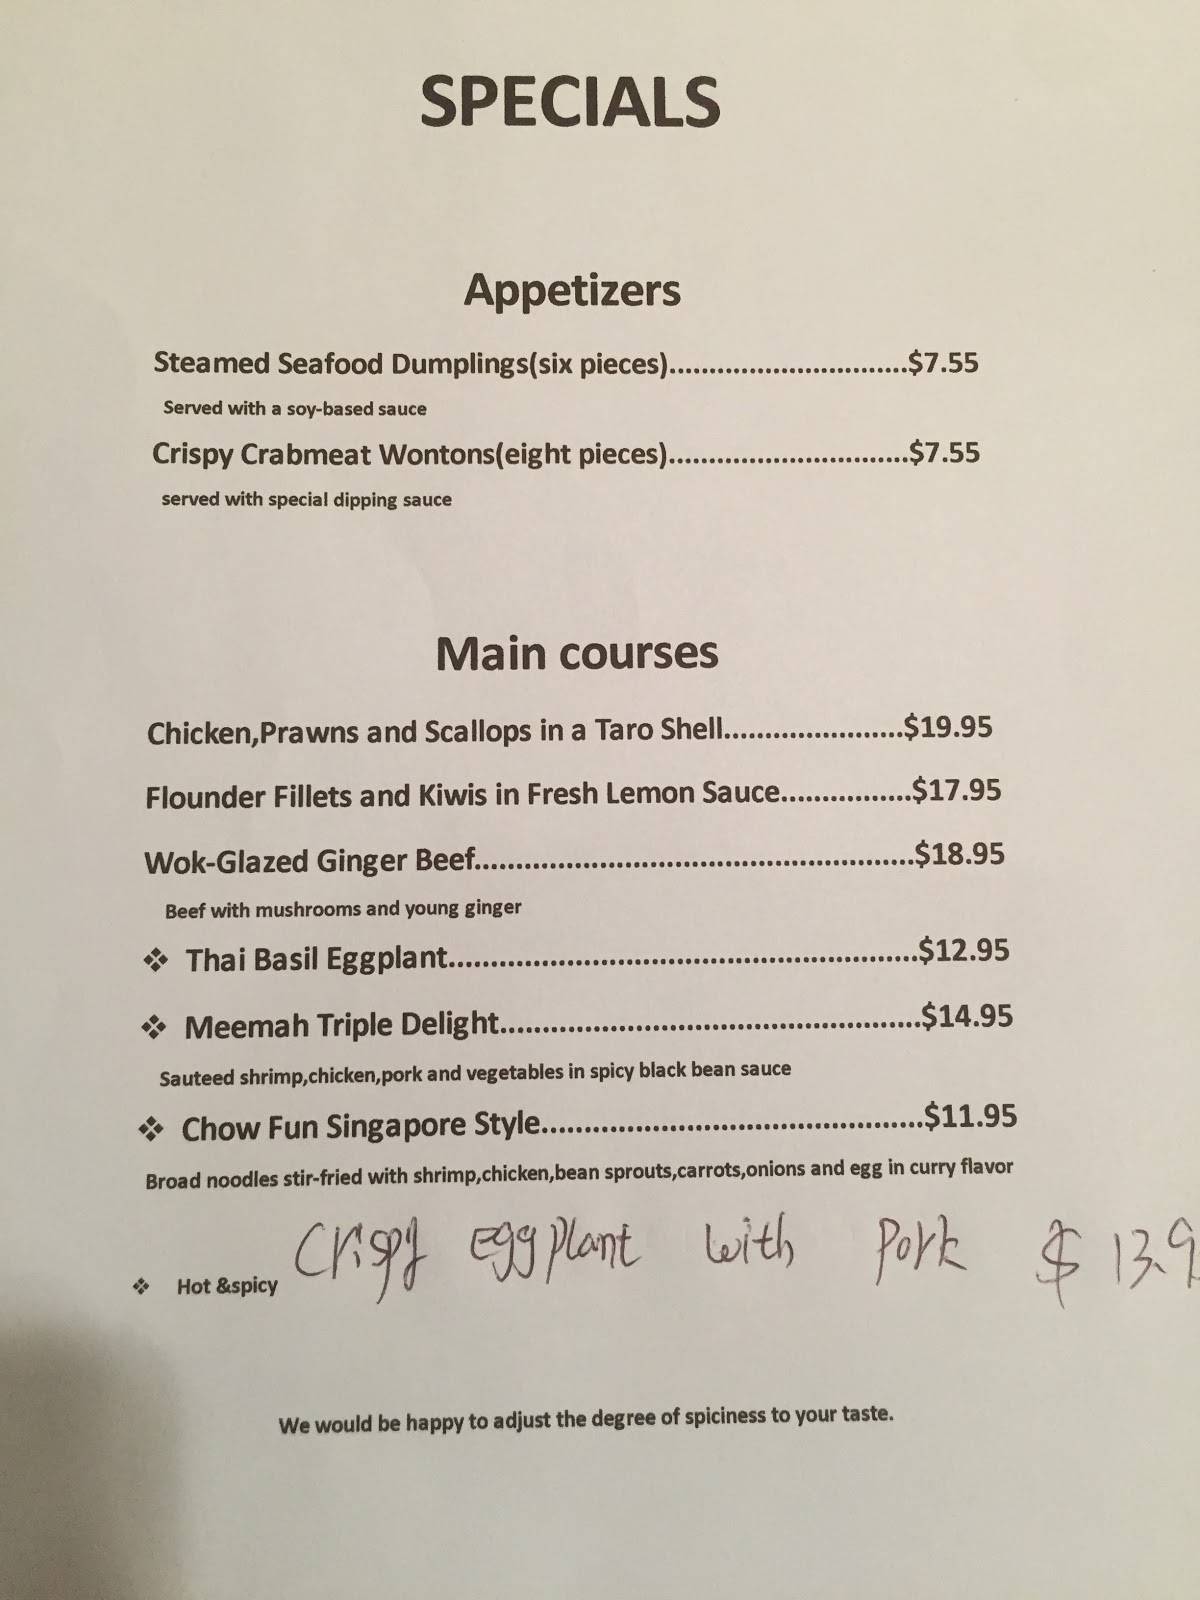 SPECIALS
Appetizers
Steamed Seafood Dumplings(six pieces)..............................$7.55
Served with a soy-based sauce
Crispy Crabmeat Wontons(eight pieces)..............................$7.55
served with special dipping sauce
Main courses
Chicken,Prawns and Scallops in a Taro Shell......................$19.95
Flounder Fillets and Kiwis in Fresh Lemon Sauce................$17.95
Wok-Glazed Ginger Beef.....................................................$18.95
Beef with mushrooms and young ginger
❖ Thai Basil Eggplant.........................................................$12.95
❖ Meemah Triple Delight...................................................$14.95
Sauteed shrimp,chicken,pork and vegetables in spicy black bean sauce
❖ Chow Fun Singapore Style..............................................$11.95
Broad noodles stir-fried with shrimp,chicken,bean sprouts,carrots,onions and egg in curry flavor
Crispy Eggplant with Pork $13.9
❖ Hot &spicy
We would be happy to adjust the degree of spiciness to your taste.